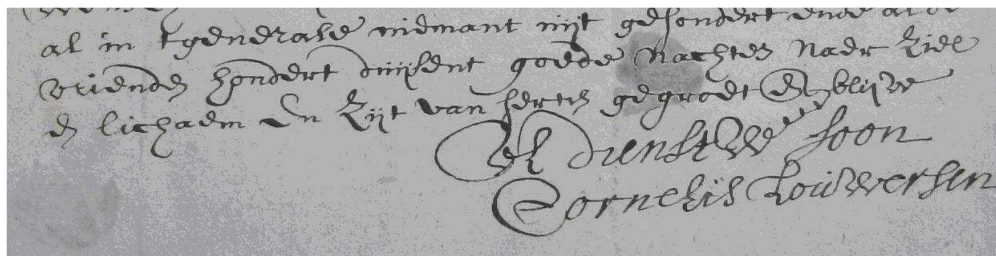 al in tgenerale niemant uijt gesondert ende al de
vrienden hondert duijsent goede nachten naer Ziel
en lichaem En Zijt van herten gegroet En blijve
UE dienstWe soon
Cornelis Louwersen